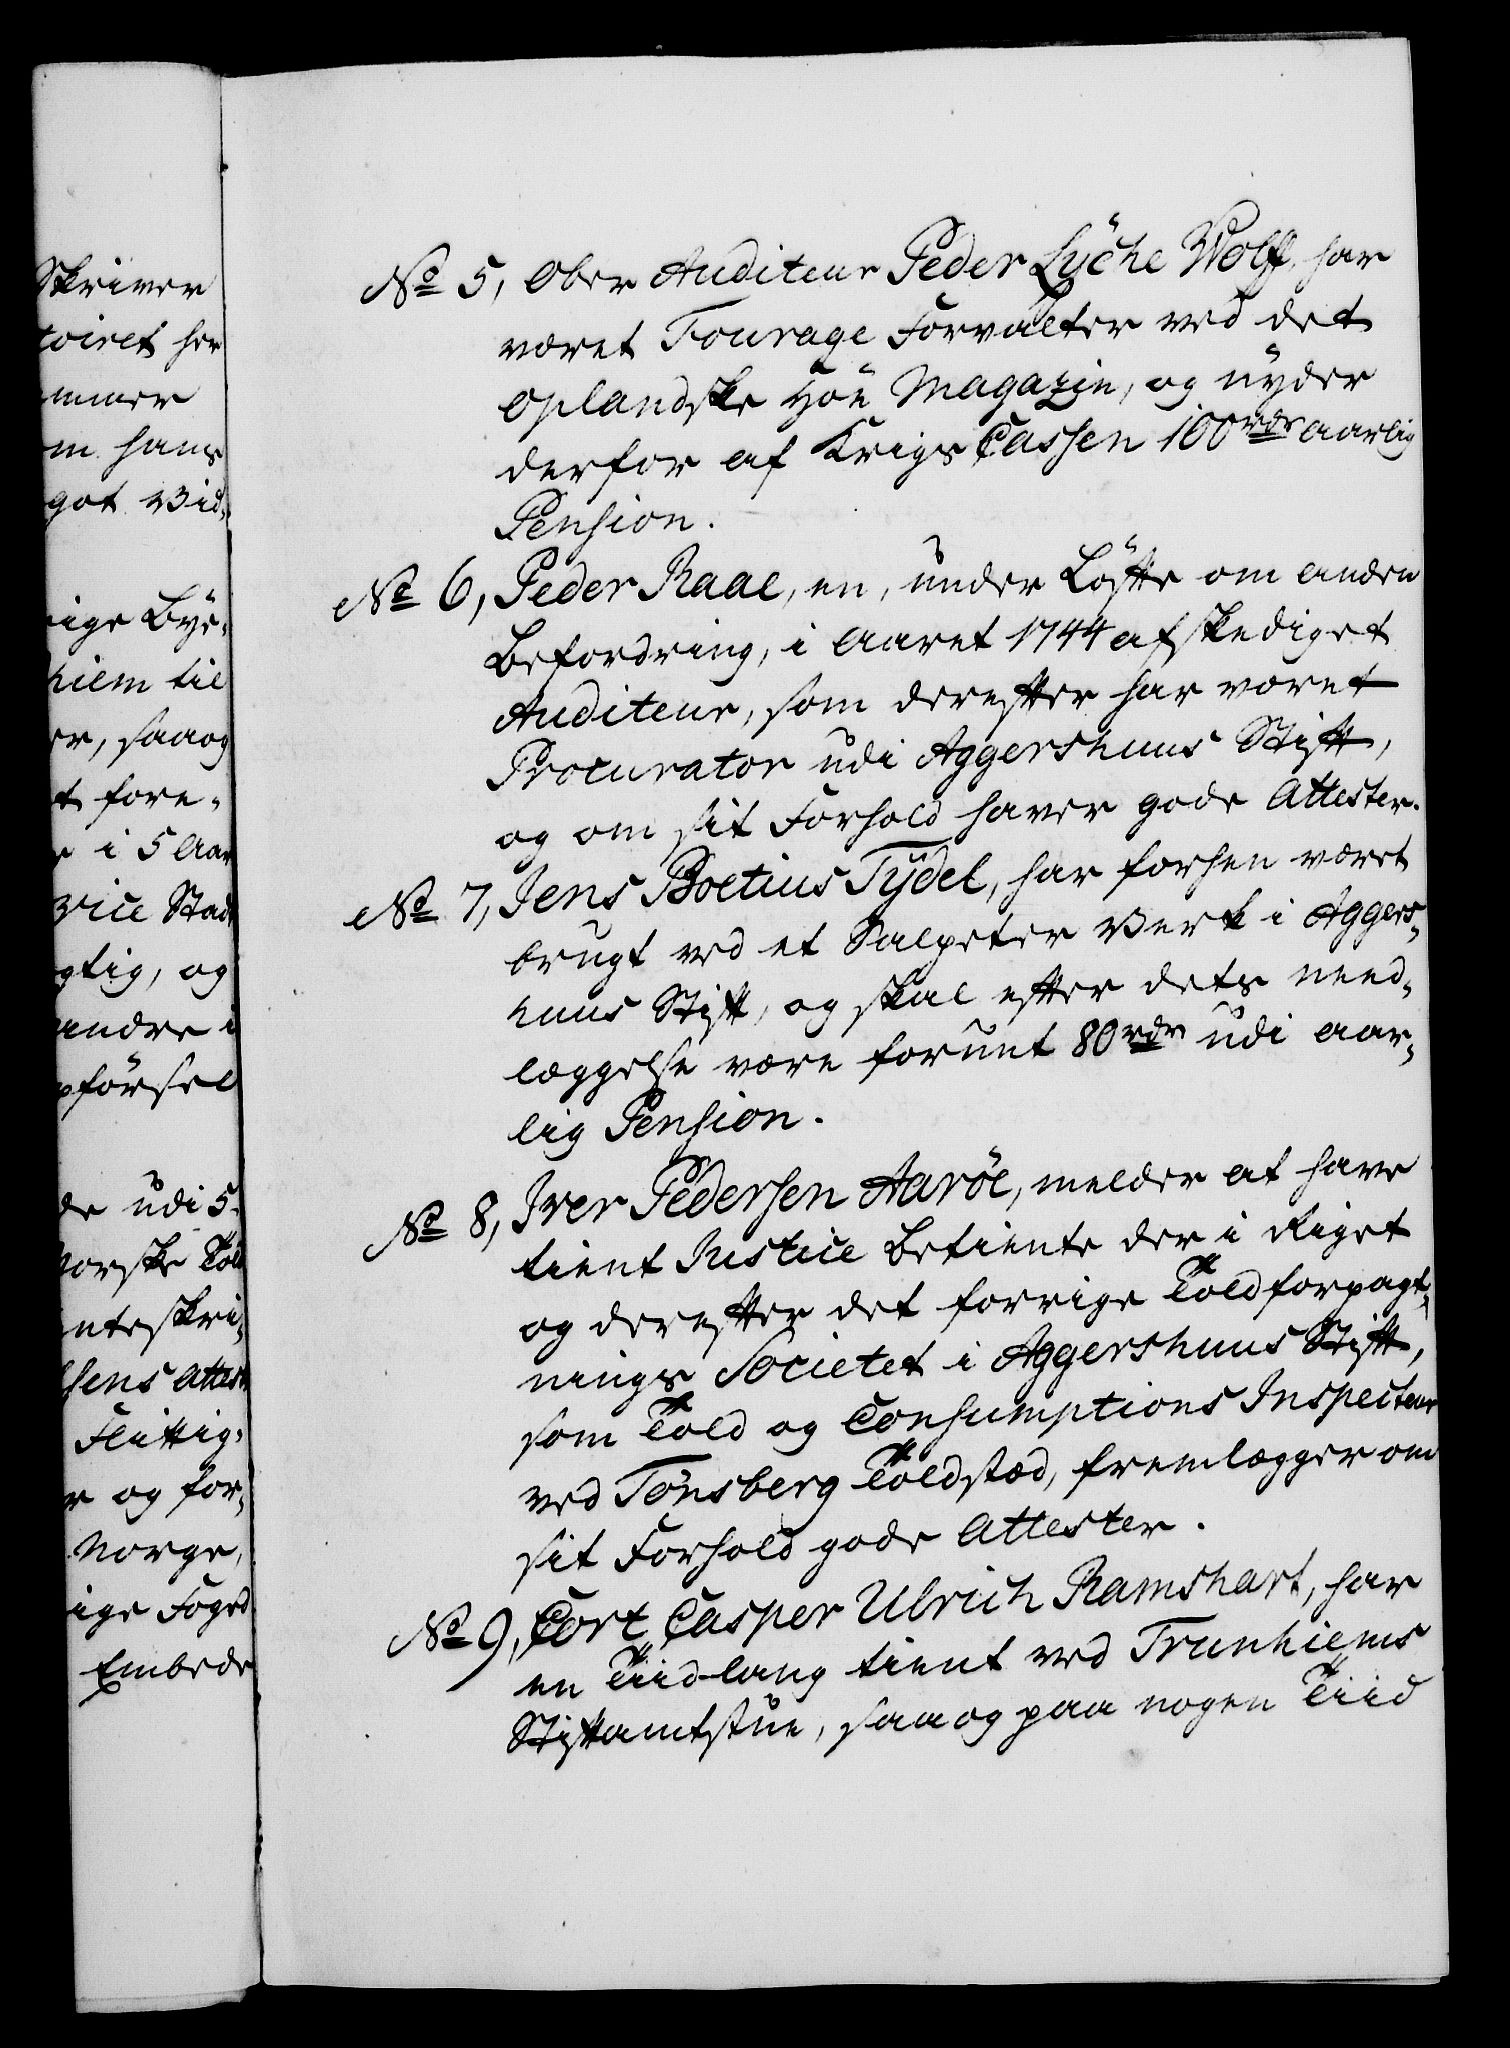 Skriver
toiret her
mmer
m hans
got Vid,
rige Bye,
hiem til
er, saaog
t fore,
e i 5 Aar
vice Stad
gtig, og
andre i
pförsel
de udi 5
Norske Told
nteskri,
sens Attest
Flittig,
r og for,
Norge,
ige Foged
Embede
No 5, Ober Auditeur Peder Lÿche Wolff, har
været Fourage Forvalter ved det
Oplandske Höe Magazin, og nÿder
derfor af Krigs Cassen 100 rdr aarlig
Pension.
No 6, Peder Raae, en, under Löfte om anden
Befordring, i Aaret 1744 afskediget
Auditeur, som derefter har været
Procurator udi Aggershuus Stift,
og om sit Forhold haver gode Attester.
No 7, Jens Boetius Tÿdel, har forhen været
brugt ved et Salpeter Verk i Aggers,
huus Stift, og skal efter dets need,
læggelse være forunt 80 rdr udi aar,
lig Pension.
No 8, Iver Pedersen Aaröe, melder at have
tient Justice Betiente der i Riget
og derefter det forrige Toldforpagt,
nings Societet i Aggershuus Stift,
som Told og Consumptions Inspecteur
ved Tönsberg Toldsted, fremlægger om
sit Forhold gode Attester.
No 9, Cort Casper Ulrich Ramshart, har
en Tiid lang tient ved Trunhiems
Stiftamtstue, saaog paa nogen Tiid